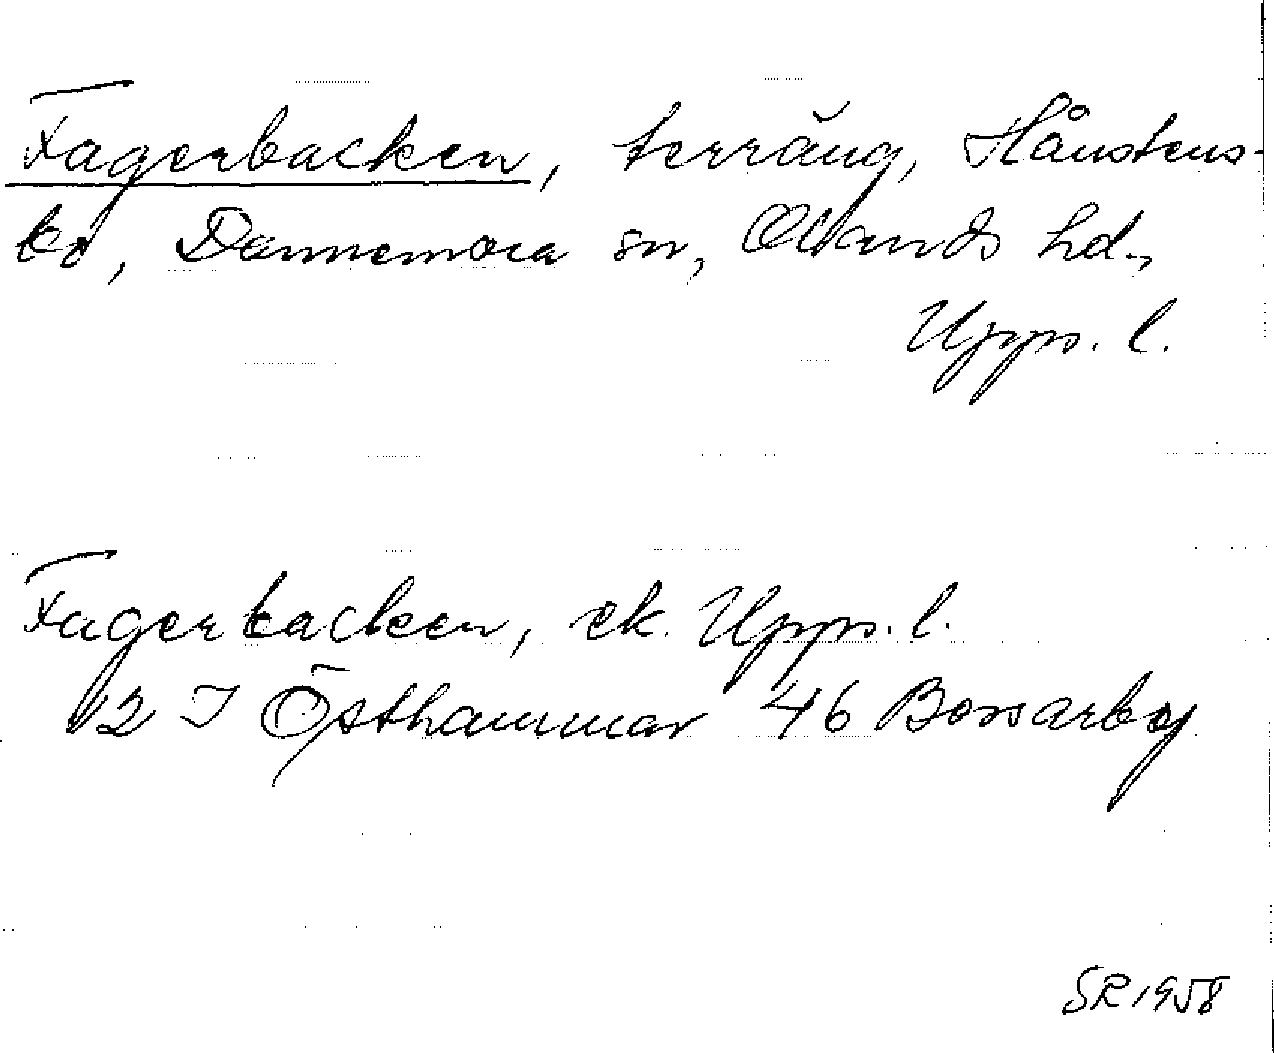 Fagerbacken, terräng, Hånstens-
bo, Dannemora sn, Olands hd.,
Upps. l.
Fagerbacken, ek. Upps. l.
12 I Östhammar 46 Bossarby
SR 1958